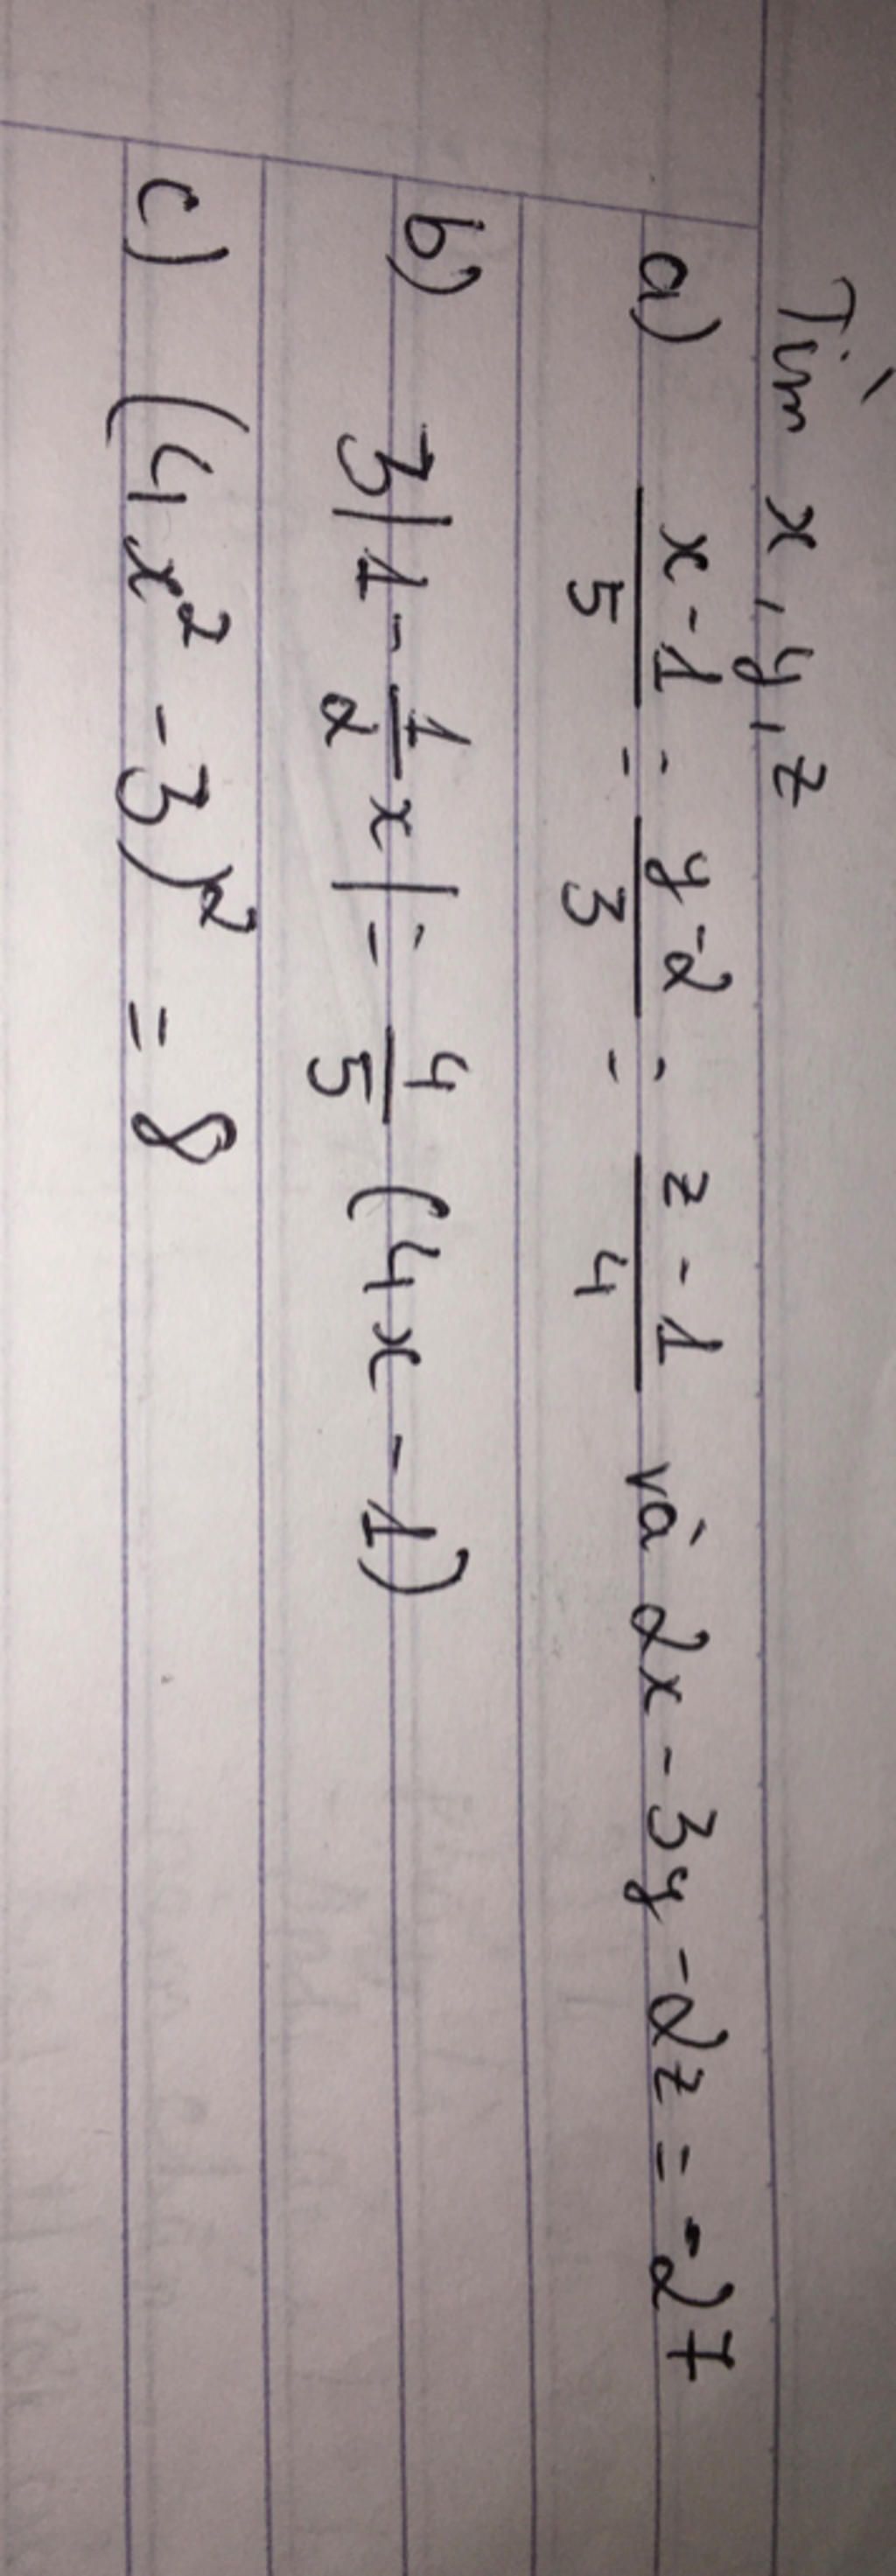 Tìm x, y, z
a) \frac{x-1}{5} = \frac{y-2}{3} = \frac{z-1}{4} và 2x - 3y - 2z = -27
b) 3|1 - \frac{1}{2}x| = \frac{4}{5}(4x - 1)
c) (4x² - 3)² = 8